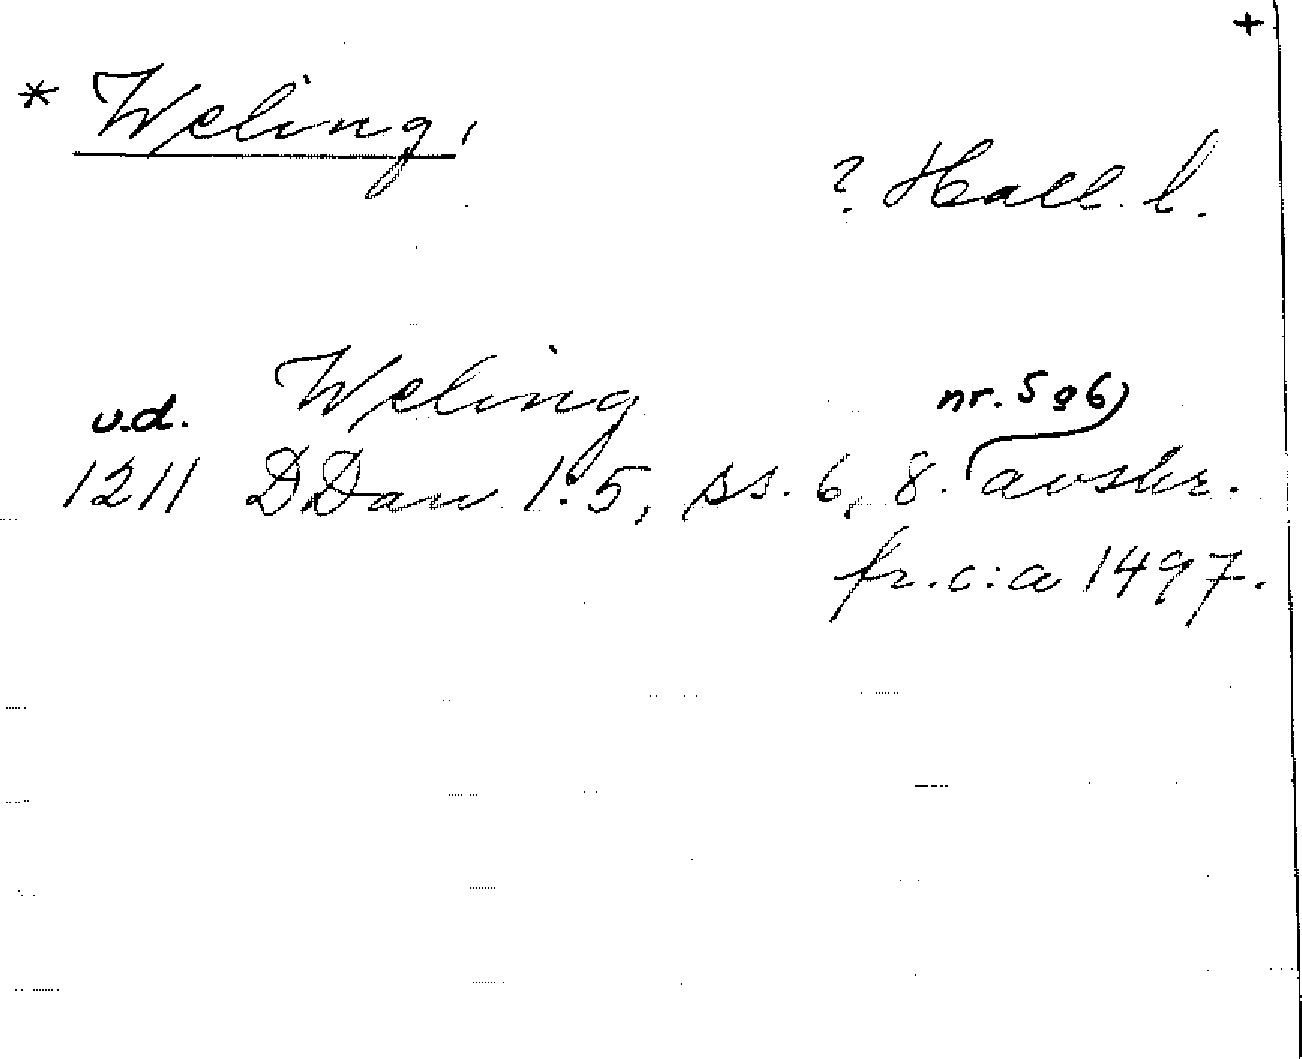 +
* Weling,
? Hall. l.
u.d. Weling nr. 5 o 6)
1211 DDan 1:5, ss. 6, 8. avskr.
fr. c:a 1497.